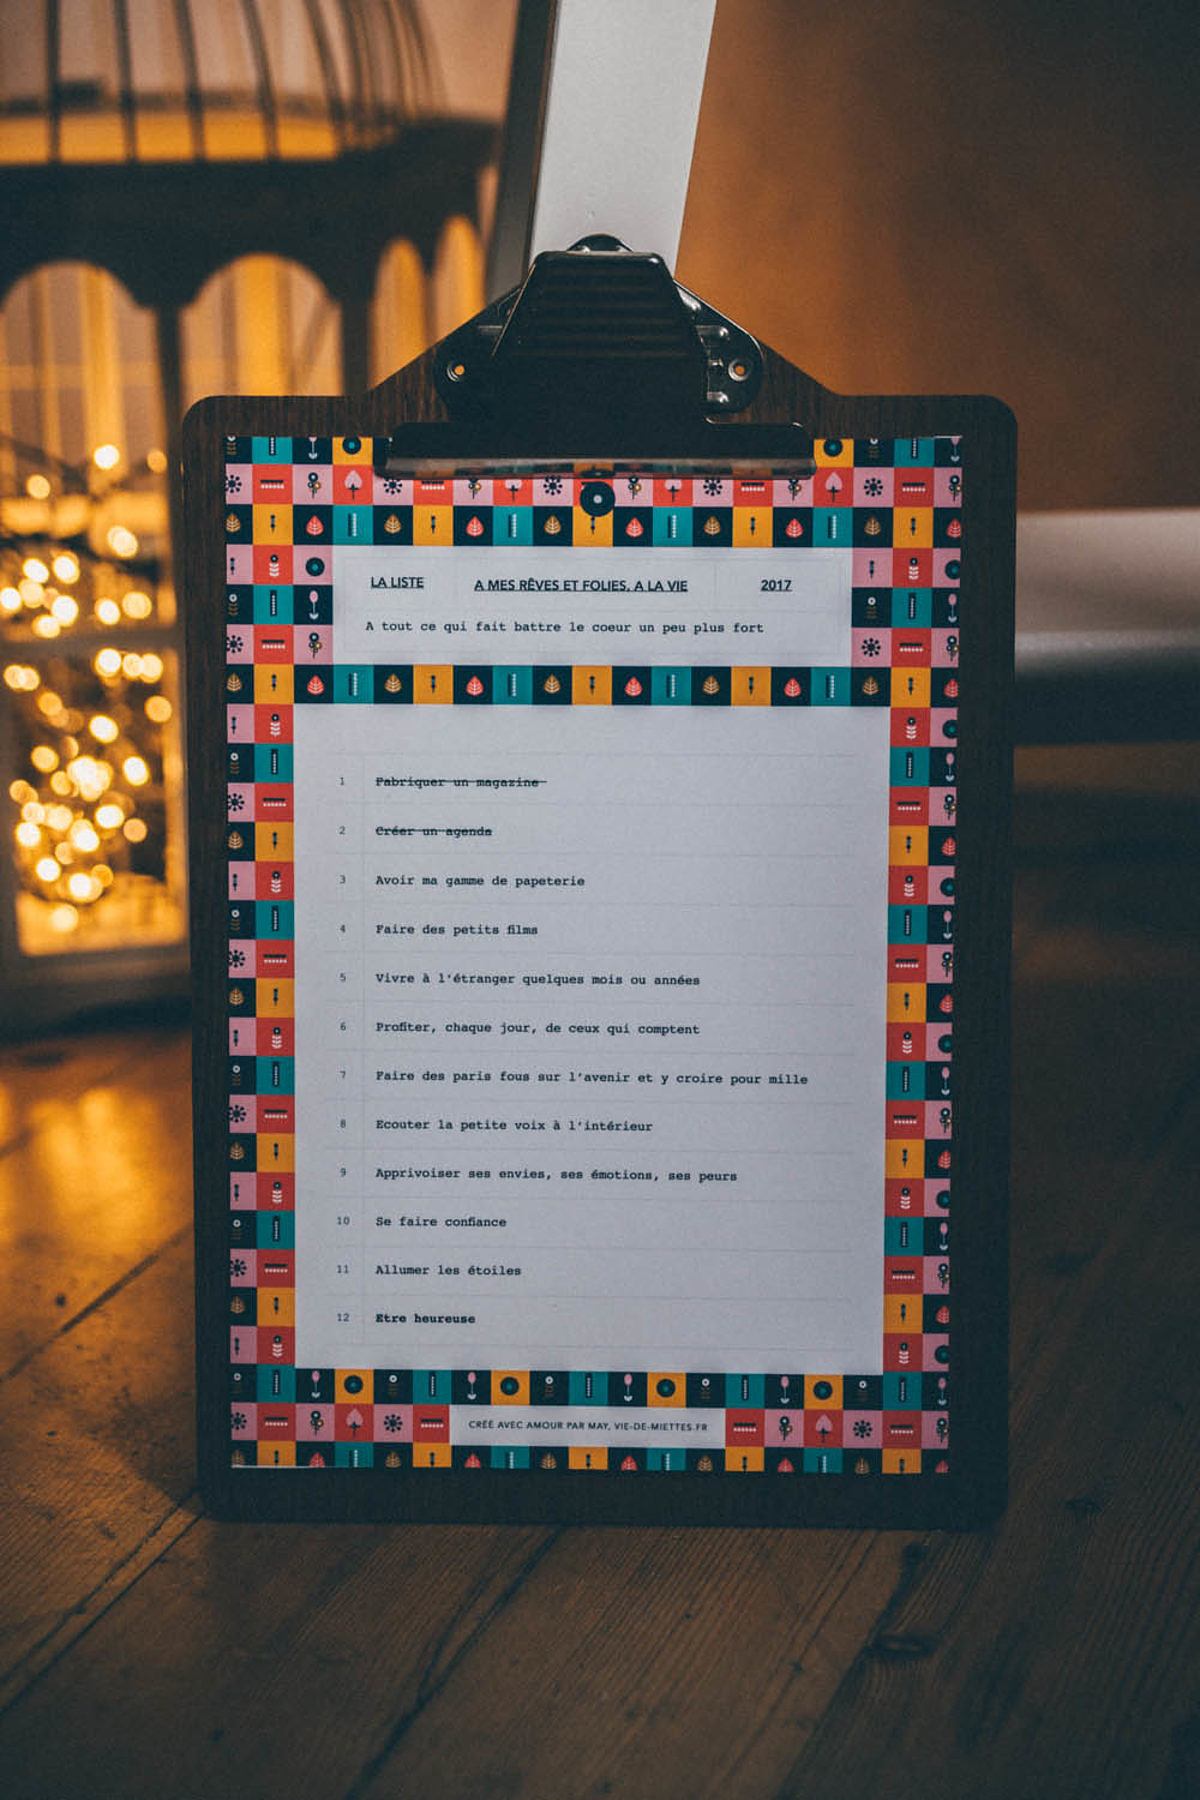 LA LISTE A MES RÊVES ET FOLIES, A LA VIE 2017
A tout ce qui fait battre le coeur un peu plus fort
1 Fabriquer un magazine
2 Créer un agenda
3 Avoir ma gamme de papeterie
4 Faire des petits films
5 Vivre à l'étranger quelques mois ou années
6 Profiter, chaque jour, de ceux qui comptent
7 Faire des paris fous sur l'avenir et y croire pour mille
8 Ecouter la petite voix à l'intérieur
9 Apprivoiser ses envies, ses émotions, ses peurs
10 Se faire confiance
11 Allumer les étoiles
12 Etre heureuse
CRÉÉ AVEC AMOUR PAR MAY, VIE-DE-MIETTES.FR